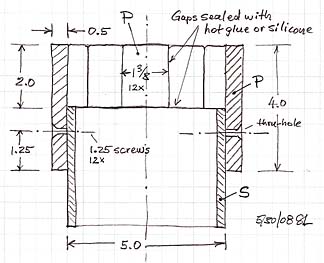 0.5
P
Gaps sealed with
hot glue or silicone
2.0
1 3/8
12x
P
4.0
thru-hole
1.25
1.25 screws
12x
S
5.0